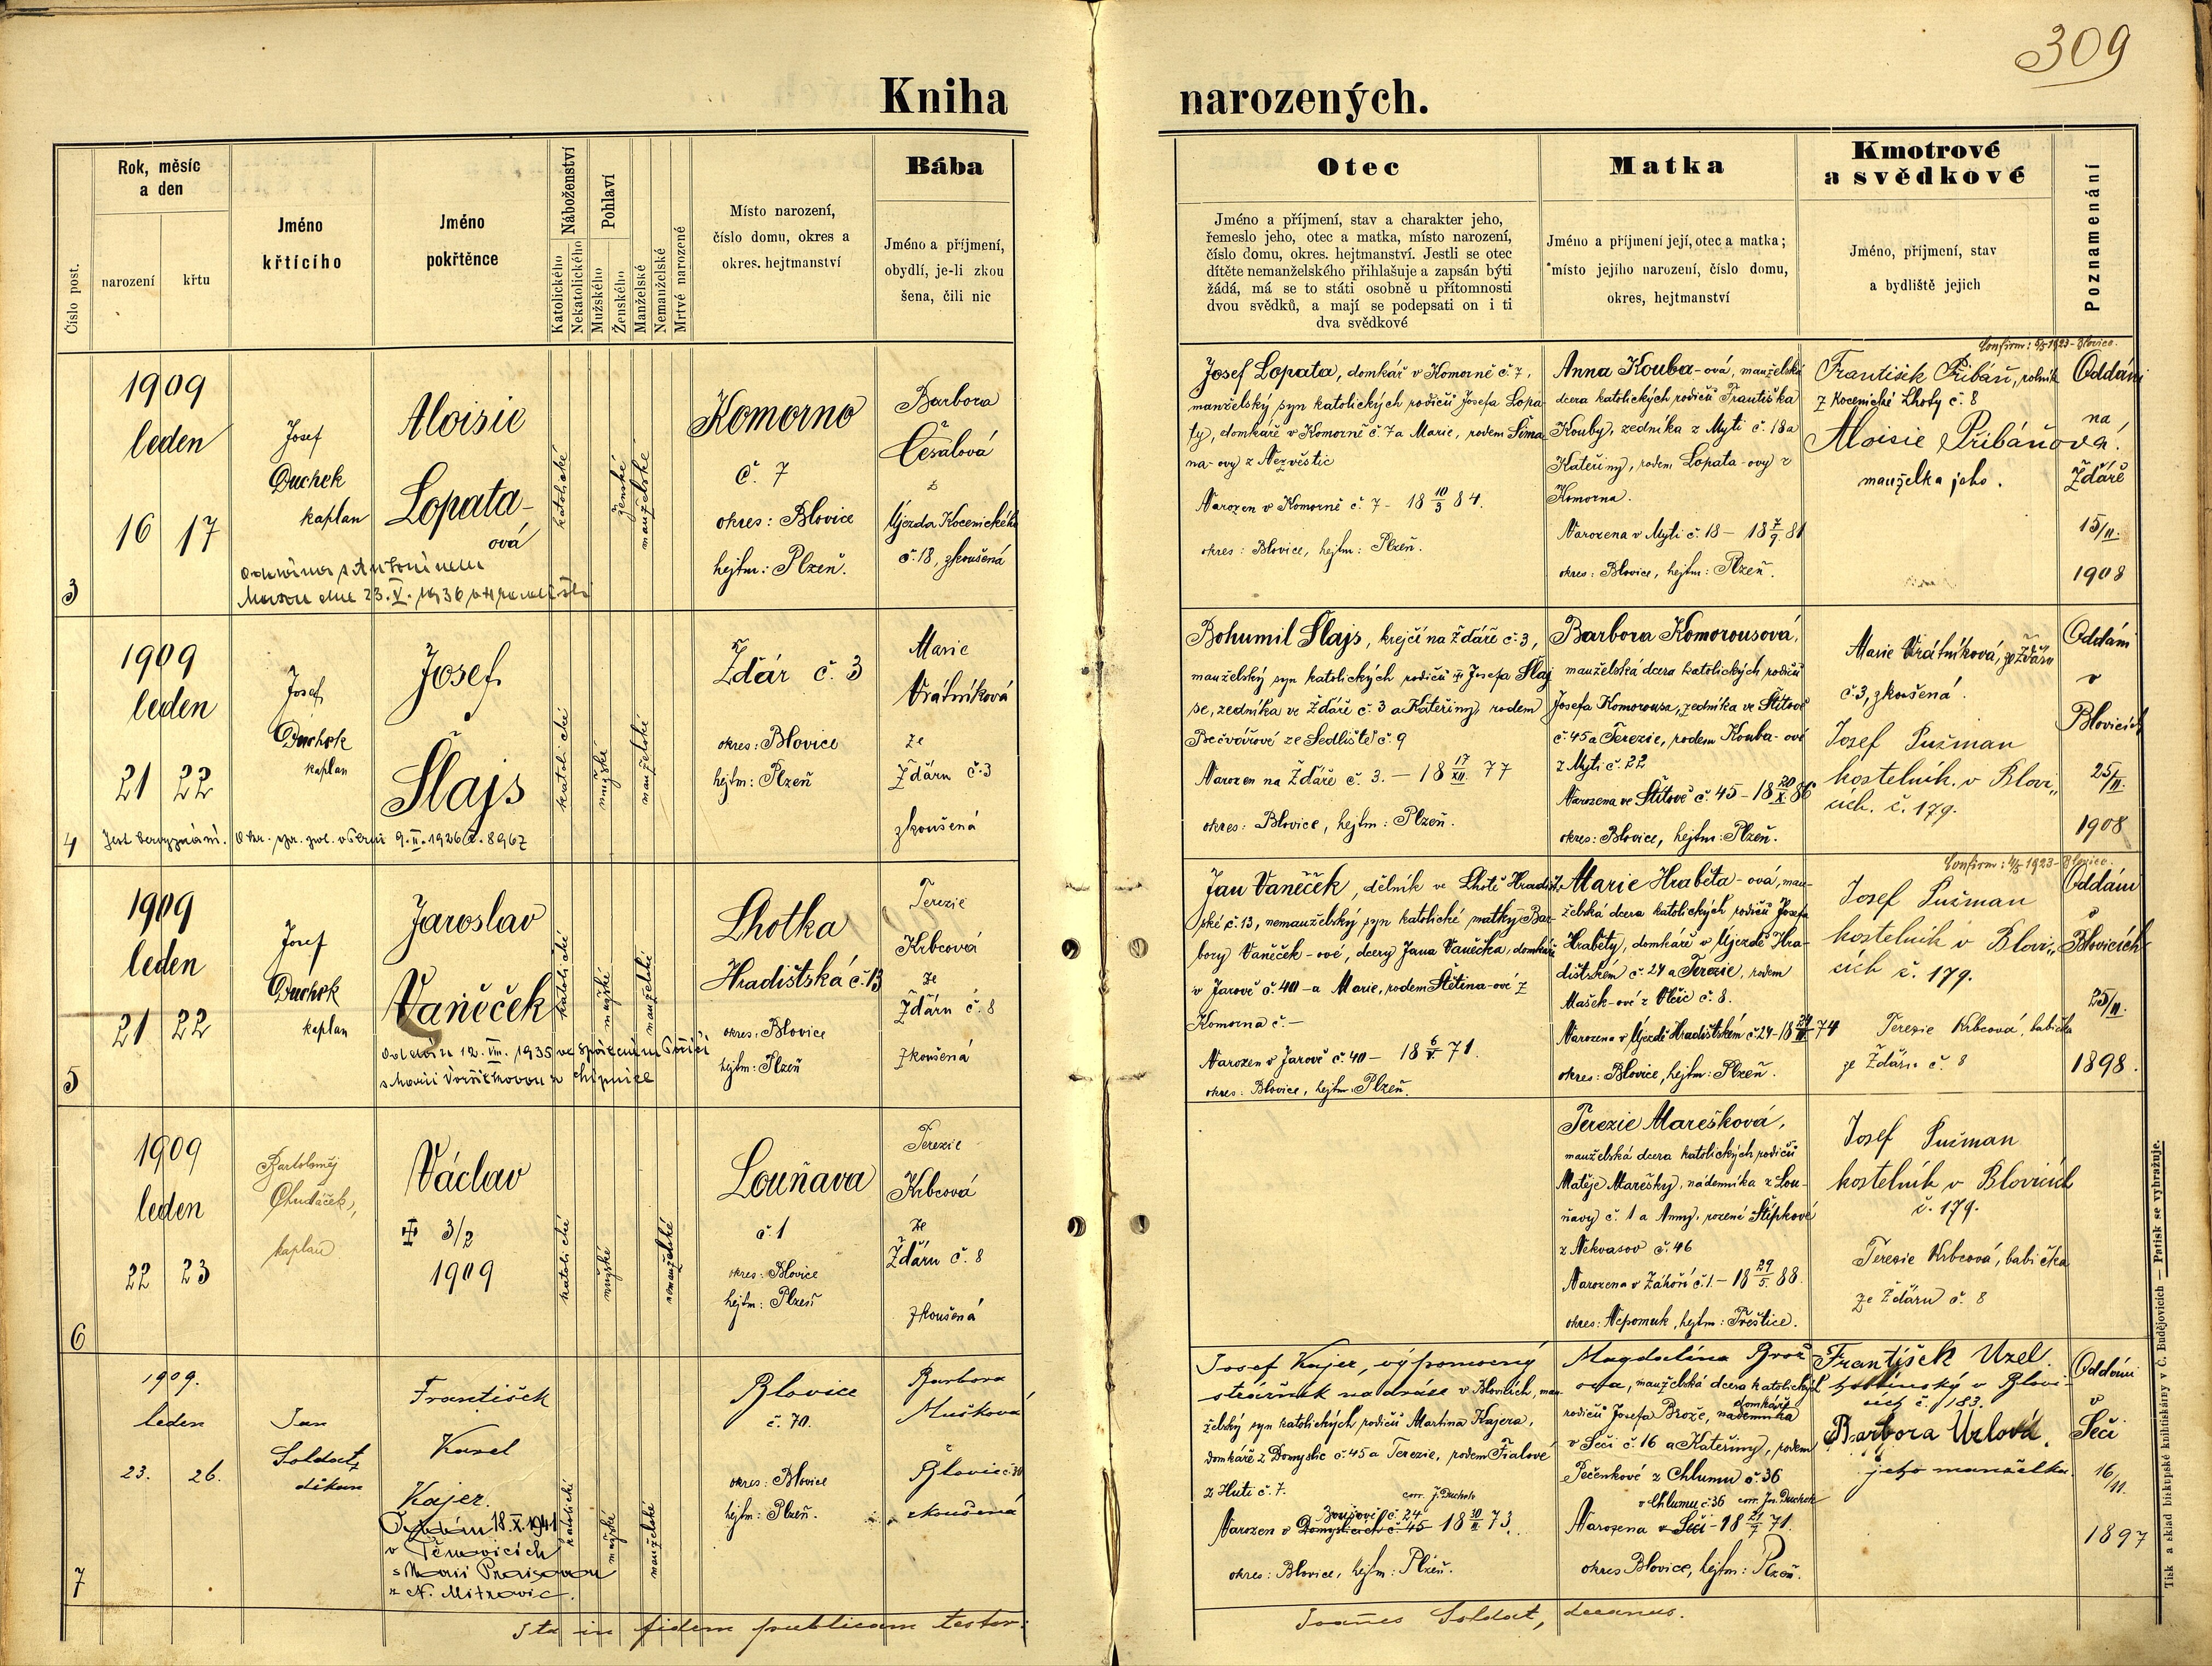 309
Kniha narozených.
Číslo post.
Rok, měsíc
a den
narození
křtu
Jméno
křtícího
Jméno
pokřtěnce
Náboženství
Katolického
Nekatolického
Pohlaví
Mužského
Ženského
Manželské
Nemanželské
Mrtvé narozené
Místo narození,
číslo domu, okres a
okres. hejtmanství
Bába
Jméno a příjmení,
obydlí, je-li zkou
šena, čili nic
Otec
Jméno a příjmení, stav a charakter jeho,
řemeslo jeho, otec a matka, místo narození,
číslo domu, okres. hejtmanství. Jestli se otec
dítěte nemanželského přihlašuje a zapsán býti
žádá, má se to státi osobně u přítomnosti
dvou svědků, a mají se podepsati on i ti
dva svědkové
Matka
Jméno a příjmení její, otec a matka;
místo jejího narození, číslo domu,
okres, hejtmanství
Kmotrové
a svědkové
Jméno, příjmení, stav
a bydliště jejich
Poznamenání
3
1909
leden
16 17
Josef
Duchek
kaplan
Aloisie
Lopata-
ová
Oddána s Antonínem
dne 23. V. 1936
katolické
ženské
manželské
Komorno
č. 7
okres: Blovice
hejtm: Plzeň.
Barbora
Češalová
z
Újezda Kocenického
č. 18, zkoušená
Josef Lopata, domkář v Komorně č. 7,
manželský syn katolických rodičů Josefa Lopa
ty, domkáře v Komorně č. 7 a Marie, rodem Šima
na-ovy z Nezvěstic
Narozen v Komorně č. 7 - 18 10/3 84.
okres: Blovice, hejtm: Plzeň.
Anna Kouba-ová, manželská
dcera katolických rodičů Františka
Kouby, zedníka z Mytí č. 18 a
Kateřiny, rodem Lopata-ovy z
Komorna.
Narozena v Mýti č. 18 - 18 7/9 81
okres: Blovice, hejtm: Plzeň.
Confirm: 1923 - Blovice.
František Přibáň, rolník
z Kocenické Lhoty č. 8
Aloisie Přibáňová.
manželka jeho.
Oddáni
na
Žďáře
15/II.
1908
4
1909
leden
21 22
Josef
Duchek
kaplan
Josef
Šlajs
Jest bez vyznání. Okr. spr. pol. 9. II. 1926 č. 8967
katolické
mužské
manželské
Žďár č. 3
okres: Blovice
hejtm: Plzeň
Marie
Vrátníková
ze
Žďáru č. 3
zkoušená
Bohumil Šlajs, krejčí na Žďáře č. 3,
manželský syn katolických rodičů ‡ Josefa Šlaj
se, zedníka ve Žďáře č. 3 a Kateřiny, rodem
Bečvářové ze Sedliště č. 9
Narozen na Žďáře č. 3. - 18 17/XII. 77
okres: Blovice, hejtm: Plzeň.
Barbora Komorousová,
manželská dcera katolických rodičů
Josefa Komorousa, zedníka ve Štítově
č. 45 a Terezie, rodem Kouba-ové
z Mýti č. 22
Narozena ve Štítově č. 45 - 18 20/X. 86
okres: Blovice, hejtm: Plzeň.
Marie Vrátníková, ze Žďáru
č. 3, zkoušená.
Josef Pušman
kostelník v Blovi„
cích. č. 179.
Oddáni
v
Blovicích
25/II.
1908
5
1909
leden
21 22
Josef
Duchek
kaplan
Jaroslav
Vaněček
Oddán 12. VII. 1935 ve Spáleném Poříčí
s Marií Voříškovou z Chýnic
katolické
mužské
manželské
Lhotka
Hradištská č. 13
okres: Blovice
hejtm: Plzeň
Terezie
Krbcová
ze
Žďáru č. 8
zkoušená
Jan Vaněček, dělník ve Lhotě Hradišt-
ské č. 13, nemanželský syn katolické matky Bar-
bory Vaněček-ové, dcery Jana Vaněčka, domkáře
v Jarově č. 40 - a Marie, rodem Štětina-ové z
Komorna č. -
Narozen v Jarově č. 40 - 18 6/V. 71.
okres: Blovice, hejtm: Plzeň.
Marie Hraběta-ová, man-
želská dcera katolických rodičů Josefa
Hraběty, domkáře v Újezdě Hra-
dištském č. 24 a Terezie, rodem
Mašek-ové z Vlčic č. 8.
Narozena v Újezdě Hradištském č. 24 - 18 74
okres: Blovice, hejtm: Plzeň.
Confirm: 1923 - Blovice.
Josef Pušman
kostelník v Blovi„
cích č. 179.
Terezie Krbcová, babička
ze Žďáru č. 8
Oddáni
v
Blovicích
25/II.
1898.
6
1909
leden
22 23
Bartoloměj
Chudáček,
kaplan
Václav
‡ 3/2
1909
katolické
mužské
nemanželské
Louňava
č. 1
okres: Blovice
hejtm: Plzeň
Terezie
Krbcová
ze
Žďáru č. 8
zkoušená
Terezie Marešková,
manželská dcera katolických rodičů
Matěje Marešky, nádenníka z Lou-
ňavy č. 1 a Anny, rozené Štípkové
z Nekvasov č. 46
Narozena v Záhoří č. 1 - 18 29/5. 88.
okres: Nepomuk, hejtm: Přeštice.
Josef Pušman
kostelník v Blovicích
č. 179.
Terezie Krbcová, babička
ze Žďáru č. 8
7
1909.
leden
23. 26.
Jan
Soldat,
děkan
František
Karel
Kajer.
Oddán 18. X. 1941
v Těnovicích
s Marií Praisovou
z N. Mitrovic.
katolické
mužské
manželské
Blovice
č. 70.
okres: Blovice
hejtm: Plzeň.
Barbora
Mušková
Blovic č. 30
zkoušená
Josef Kajer, výpomocný
strážník na dráze v Blovicích, man
želský syn katolických rodičů Martina Kajera,
domkáře z Domyslic č. 45 a Terezie, rodem Fialové
z Huti č. 7.
corr. J. Duchek
č. 24
Narozen v Domyslicích č. 45 18 73.
okres: Blovice, hejtm: Plzeň.
Magdalina Brož
ova, manželská dcera katolických
domkáře
rodičů Josefa Brože, nádenníka
v Seči č. 16 a Kateřiny, rodem
Pečenkové z Chlumu č. 36
v Chlumu č. 36 corr. Jos. Duchek
Narozena v Seči - 18 21/7 71.
okres Blovice, hejtm: Plzeň.
František Uzel
hostinský v Blovi-
cích č. 183.
Barbora Uzlová,
jeho manželka.
Oddáni
v
Seči
16/11.
1897
Ita in fidem publicam testor: Joañes Soldat, decanus.
Tisk a sklad biskupské knihtiskárny v Č. Budějovicích — Patisk se vyhražuje.